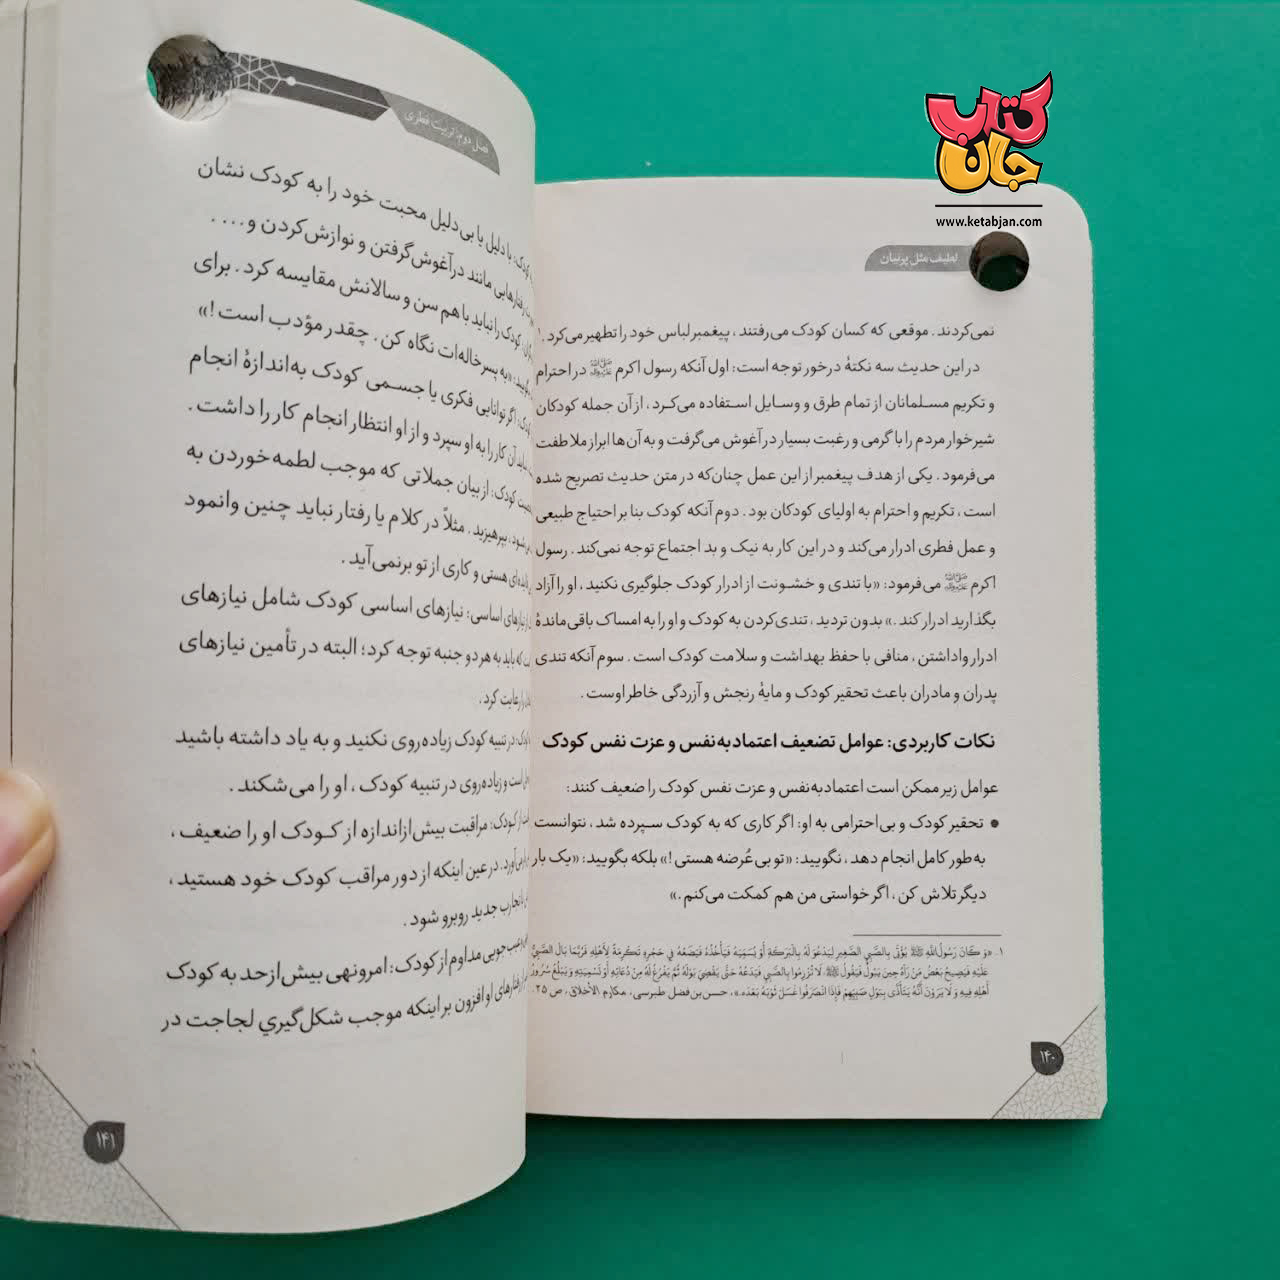 کتاب
جان
www.ketabjan.com
لطیف مثل پرنیان
نمی‌کردند. موقعی که کسان کودک می‌رفتند، پیغمبر لباس خود را تطهیر می‌کرد.۱
در این حدیث سه نکتهٔ درخور توجه است: اول آنکه رسول اکرم ﷺ در احترام
و تکریم مسلمانان از تمام طرق و وسایل استفاده می‌کرد، از آن جمله کودکان
شیرخوار مردم را با گرمی و رغبت بسیار در آغوش می‌گرفت و به آن‌ها ابراز ملاطفت
می‌فرمود. یکی از هدف پیغمبر از این عمل چنان‌که در متن حدیث تصریح شده
است، تکریم و احترام به اولیای کودکان بود. دوم آنکه کودک بنا بر احتیاج طبیعی
و عمل فطری ادرار می‌کند و در این کار به نیک و بد اجتماع توجه نمی‌کند. رسول
اکرم ﷺ می‌فرمود: «با تندی و خشونت از ادرار کودک جلوگیری نکنید، او را آزاد
بگذارید ادرار کند.» بدون تردید، تندی‌کردن به کودک و او را به امساک باقی‌ماندهٔ
ادرار واداشتن، منافی با حفظ بهداشت و سلامت کودک است. سوم آنکه تندی
پدران و مادران باعث تحقیر کودک و مایهٔ رنجش و آزردگی خاطر اوست.
نکات کاربردی: عوامل تضعیف اعتمادبه‌نفس و عزت نفس کودک
عوامل زیر ممکن است اعتمادبه‌نفس و عزت نفس کودک را ضعیف کنند:
● تحقیر کودک و بی‌احترامی به او: اگر کاری که به کودک سپرده شد، نتوانست
به‌طور کامل انجام دهد، نگویید: «تو بی‌عُرضه هستی!» بلکه بگویید: «یک بار
دیگر تلاش کن، اگر خواستی من هم کمکت می‌کنم.»
۱. «وَ كَانَ رَسُولُ‌اللهِ ﷺ يُؤْتَى بِالصَّبِيِّ الصَّغِيرِ لِيَدْعُوَ لَهُ بِالْبَرَكَةِ أَوْ يُسَمِّيَهُ فَيَأْخُذُهُ فَيَضَعُهُ فِي حَجْرِهِ تَكْرِمَةً لِأَهْلِهِ فَرُبَّمَا بَالَ الصَّبِيُّ
عَلَيْهِ فَيَصِيحُ بَعْضُ مَنْ رَآهُ حِينَ يَبُولُ فَيَقُولُ ﷺ، لَا تُزْرِمُوا بِالصَّبِيِّ فَيَدَعُهُ حَتَّى يَقْضِيَ بَوْلَهُ ثُمَّ يَفْرَغُ لَهُ مِنْ دُعَائِهِ أَوْ تَسْمِيَتِهِ وَ يَبْلُغُ سُرُورُ
أَهْلِهِ فِيهِ وَ لَا يَرَوْنَ أَنَّهُ يَتَأَذَّى بِبَوْلِ صَبِيِّهِمْ فَإِذَا انْصَرَفُوا غَسَلَ ثَوْبَهُ بَعْدَهُ.»، حسن بن فضل طبرسی، مکارم الأخلاق، ص ۲۵.
۱۴۰
فصل دوم: تربیت فطری
کودک: با دلیل یا بی‌دلیل محبت خود را به کودک نشان
رفتارهایی مانند درآغوش‌گرفتن و نوازش‌کردن و....
کودک را نباید با هم سن و سالانش مقایسه کرد. برای
«به پسرخاله‌ات نگاه کن. چقدر مؤدب است!»
اگر توانایی فکری یا جسمی کودک به‌اندازهٔ انجام
نباید آن کار را به او سپرد و از او انتظار انجام کار را داشت.
کودک: از بیان جملاتی که موجب لطمه‌خوردن به
بپرهیزید. مثلاً در کلام یا رفتار نباید چنین وانمود
هستی و کاری از تو برنمی‌آید.
نیازهای اساسی: نیازهای اساسی کودک شامل نیازهای
که باید به هر دو جنبه توجه کرد؛ البته در تأمین نیازهای
را رعایت کرد.
در تنبیه کودک زیاده‌روی نکنید و به یاد داشته باشید
است و زیاده‌روی در تنبیه کودک، او را می‌شکند.
از کودک: مراقبت بیش‌ازاندازه از کودک او را ضعیف،
در عین اینکه از دور مراقب کودک خود هستید،
با تجارب جدید روبرو شود.
عیب‌جویی مداوم از کودک: امرونهی بیش‌ازحد به کودک
رفتارهای او افزون بر اینکه موجب شکل‌گیري لجاجت در
۱۴۱